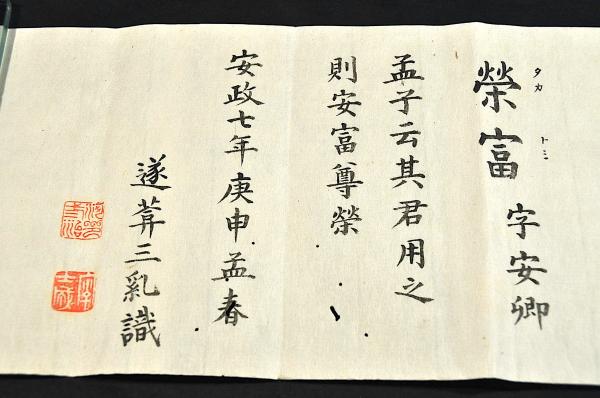 榮富 字安卿
タカ トミ
孟子云其君用之
則安富尊榮
安政七年庚申孟春
遂葊三乿識